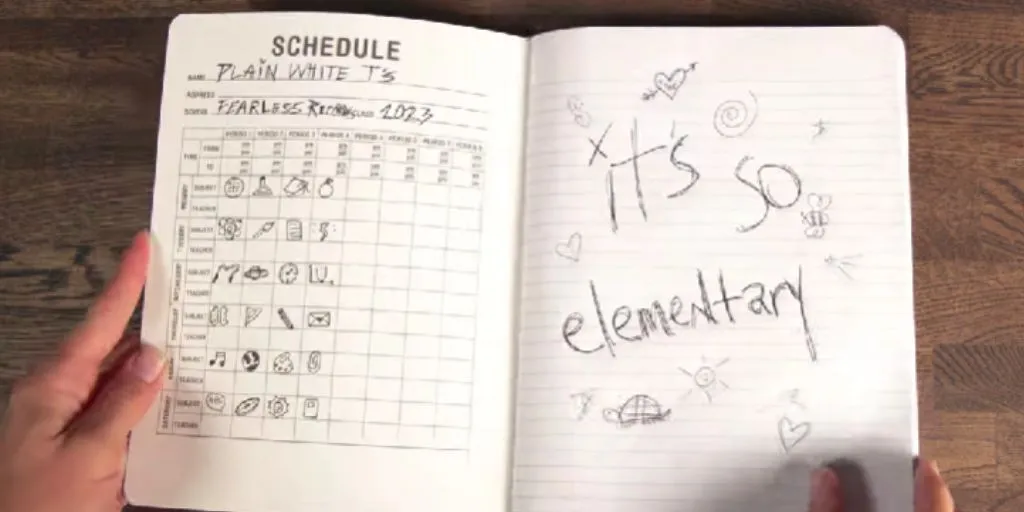 SCHEDULE
NAME PLAIN WHITE T'S
ADDRESS
SCHOOL FEARLESS RECORDS CLASS 2023
PERIOD 1 PERIOD 2 PERIOD 3 PERIOD 4 PERIOD 5 PERIOD 6 PERIOD 7 PERIOD 8
TIME FROM
TO
MONDAY SUBJECT
TEACHER
TUESDAY SUBJECT
TEACHER
WEDNESDAY SUBJECT
TEACHER
THURSDAY SUBJECT
TEACHER
FRIDAY SUBJECT
TEACHER
SATURDAY SUBJECT
TEACHER
iT's so
elementary